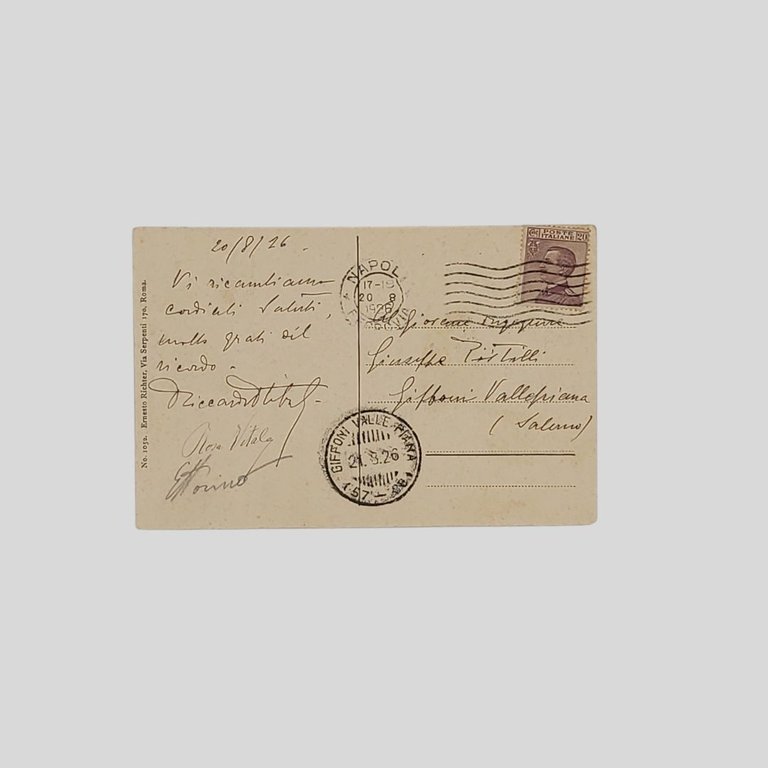 20/8/26.
Vi ricambiamo
cordiali saluti,
molto grati del
ricordo.
Riccardo Vital
Rosa Vitale
No. 1052. Ernesto Richter, Via Serpenti 170, Roma.
NAPOLI
17-18
20 8
1926
FERROVIA
POSTE
ITALIANE
20
Al Giovane
Giuseppe
Giffoni Vallepiana
(Salerno)
GIFFONI VALLE PIANA
21.8.26
(57-98)